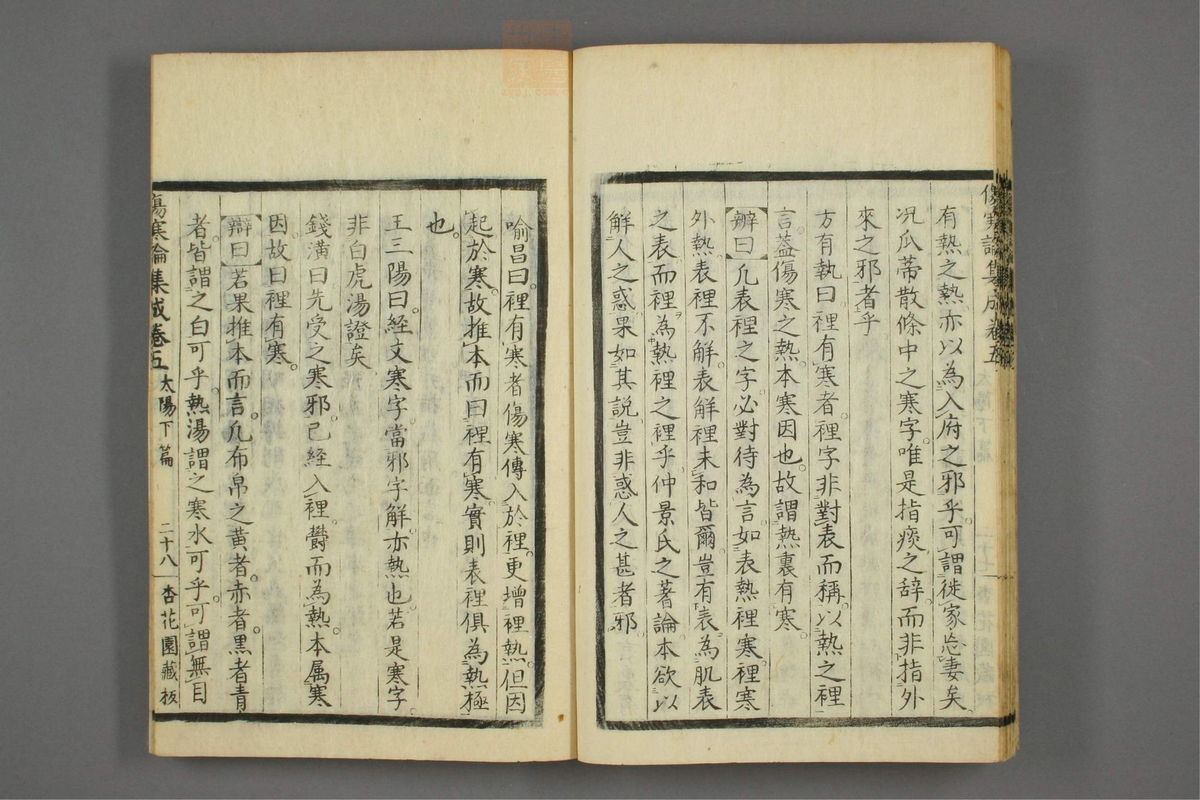 傷寒論集成卷五
有熱之熱亦以為入府之邪乎可謂徙家忘妻矣
况瓜蒂散條中之寒字唯是指痰之辭而非指外
來之邪者乎
方有執曰裡有寒者裡字非對表而稱以熱之裡
言蓋傷寒之熱本寒因也故謂熱裏有寒
辨曰凡表裡之字必對待為言如表熱裡寒裡寒
外熱表裡不解表解裡未和皆爾豈有表為肌表
之表而裡為熱裡之裡乎仲景氏之著論本欲以
解人之惑果如其說豈非惑人之甚者邪
喻昌曰裡有寒者傷寒傳入於裡更增裡熱但因
起於寒故推本而曰裡有寒實則表裡俱為熱極
也
王三陽曰經文寒字當邪字解亦熱也若是寒字
非白虎湯證矣
錢潢曰先受之寒邪已經入裡欝而為熱本属寒
因故曰裡有寒
辯曰若果推本而言凡布帛之黄者赤者黒者青
者皆謂之白可乎熱湯謂之寒水可乎可謂無目
傷寒論集成卷五 太陽下篇 二十八 杏花園藏板